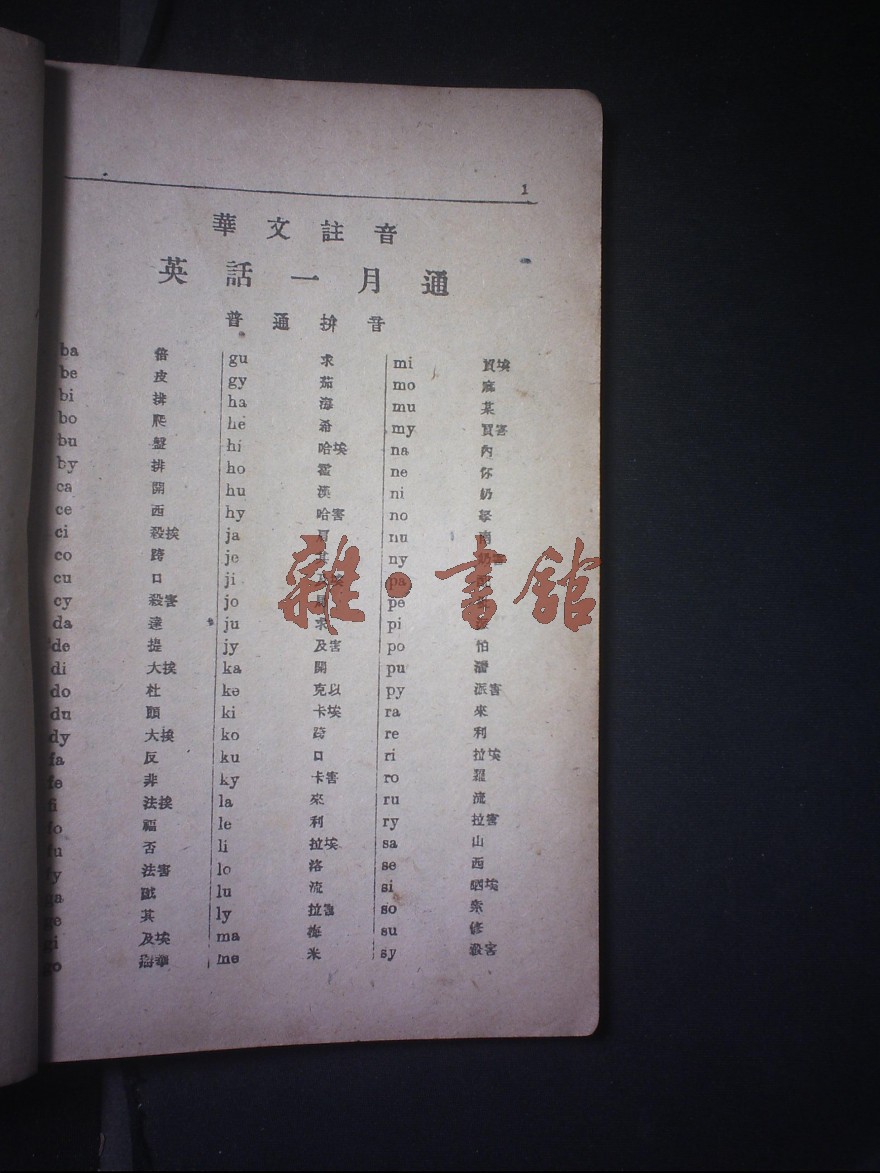 1
華文註音
英話一月通
普通拚音
ba 倍
be 皮
bi 排
bo 爬
bu 盤
by 排
ca 開
ce 西
ci 殺挨
co 跨
cu 口
cy 殺害
da 達
de 提
di 大挨
do 杜
du 頭
dy 大挨
fa 反
fe 非
fi 法挨
fo 福
fu 否
fy 法害
ga
ge 其
gi 及埃
go
gu 求
gy 茄
ha 海
he 希
hi 哈埃
ho 霍
hu 漢
hy 哈害
ja
je 其
ji
jo
ju 求
jy 及害
ka 開
ke 克以
ki 卡埃
ko 跨
ku 口
ky 卡害
la 來
le 利
li 拉埃
lo 洛
lu 流
ly 拉害
ma 梅
me 米
mi 買埃
mo 麻
mu 某
my 買害
na 內
ne 你
ni 奶
no 拏
nu 南
ny
pa
pe
pi
po 怕
pu 潘
py 派害
ra 來
re 利
ri 拉埃
ro 羅
ru 流
ry 拉害
sa 山
se 西
si 晒埃
so 索
su 修
sy 殺害
雜·書館